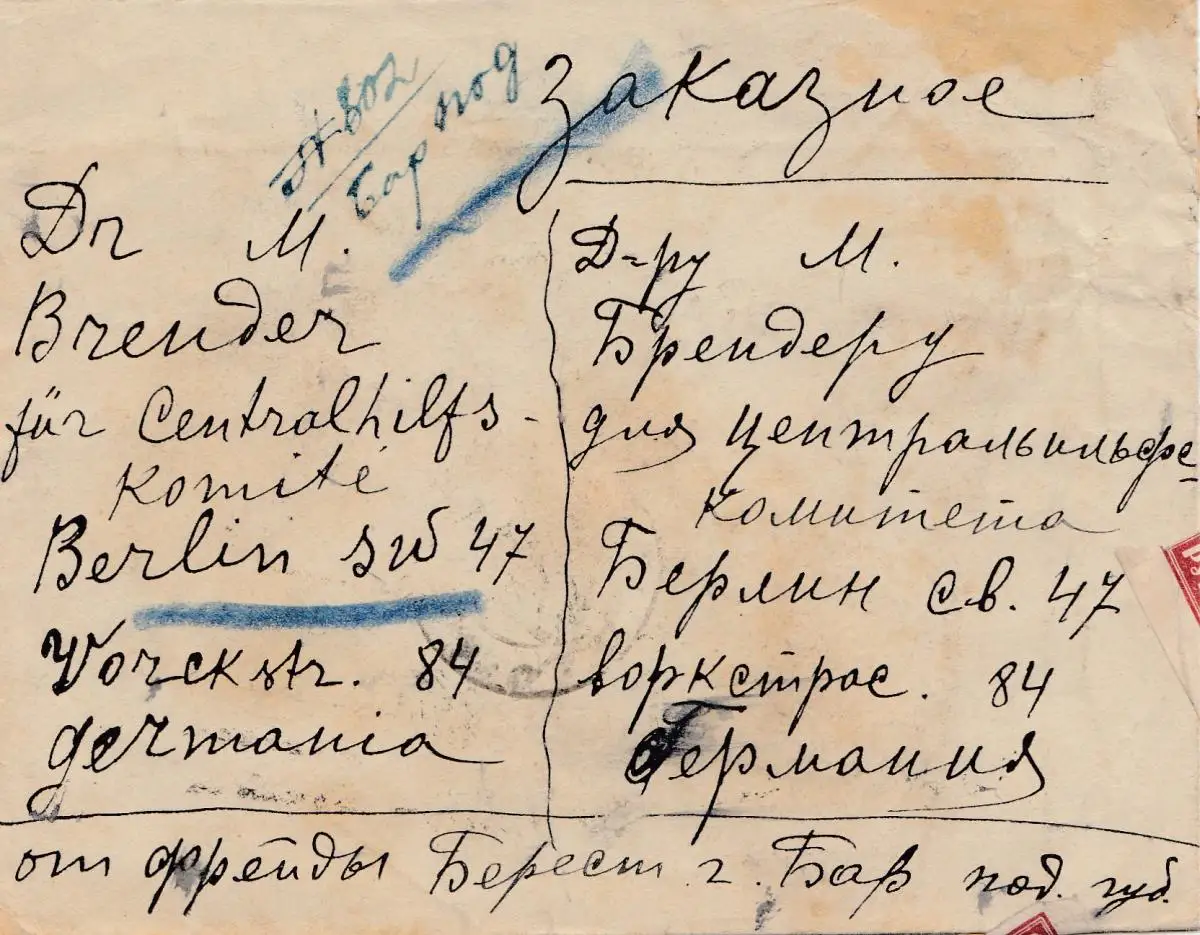 заказное
802
Бар под
Dr M.
Brender
für Centralhilfs-
komité
Berlin SW 47
Vorckstr. 84
germania
Д-ру М.
Брендеру
для центральхильфс-
комитета
Берлин св. 47
воркстрас. 84
Германия
от фрейды Берест г. Бар под. губ.